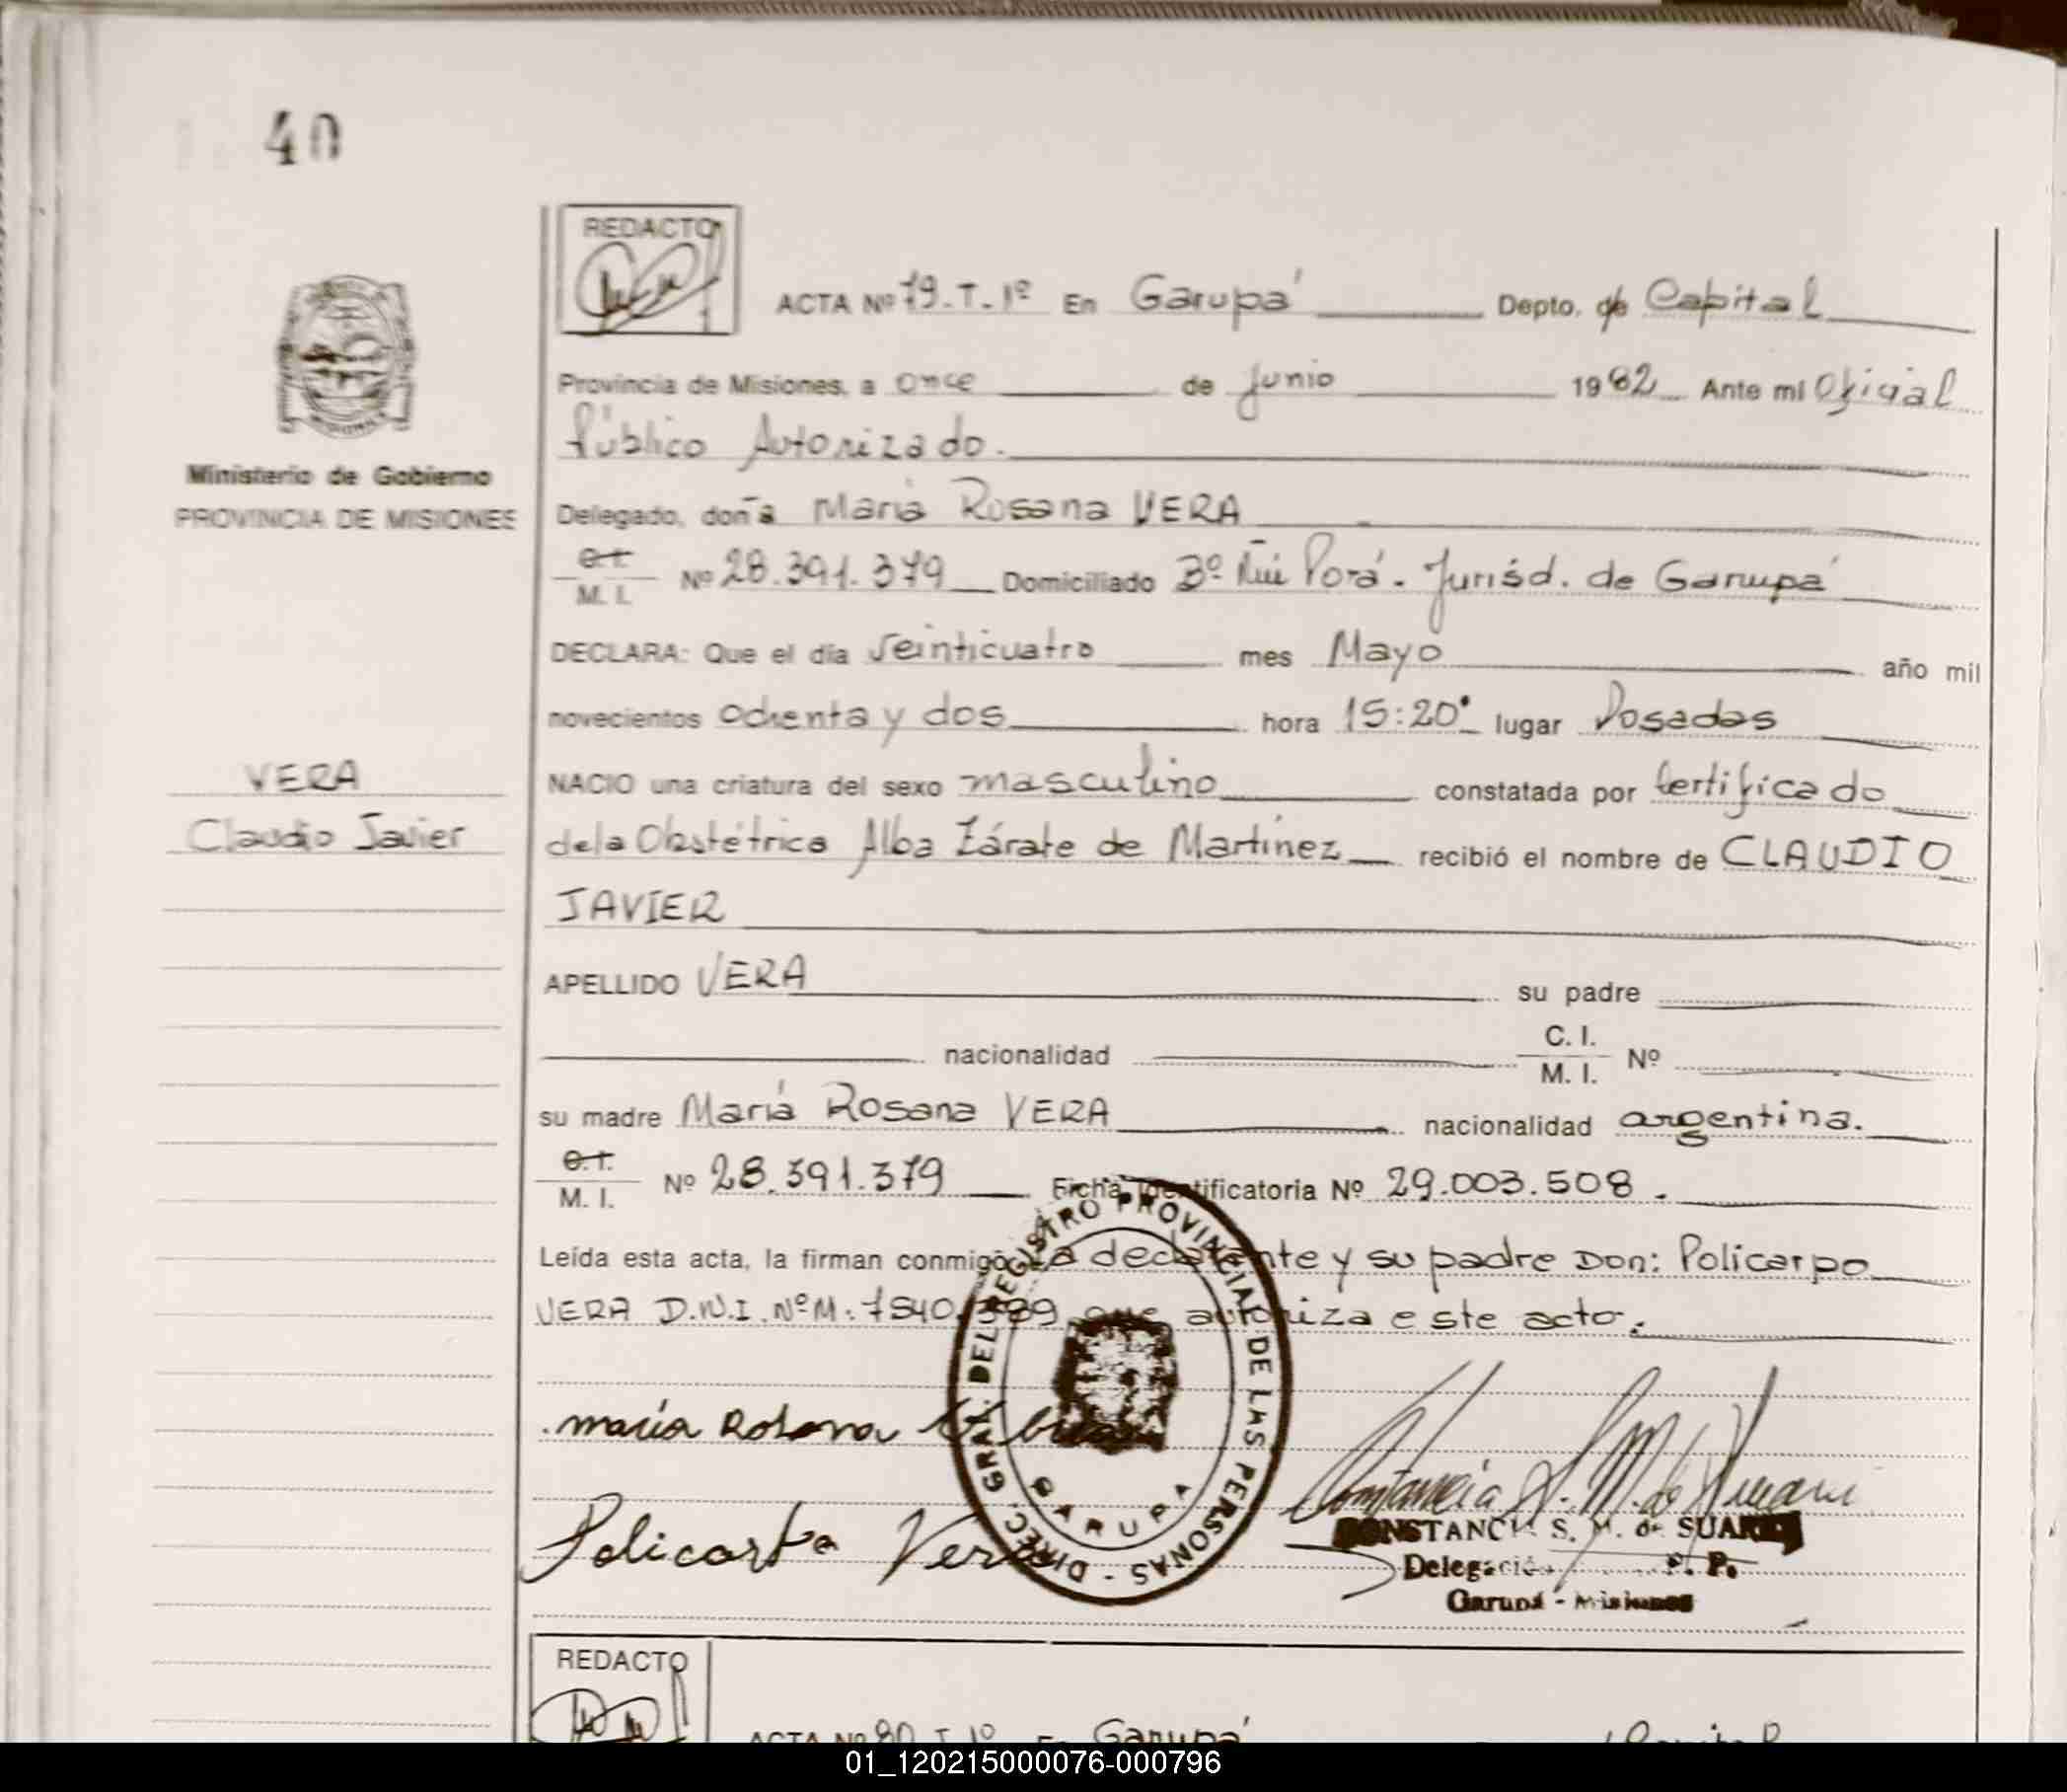 40
REDACTO
ACTA Nº 79-T-1º En Garupá Depto. de Capital
Provincia de Misiones, a once de Junio 1982 Ante mi Oficial
Público Autorizado.
Ministerio de Gobierno
PROVINCIA DE MISIONES
Delegado, doña María Rosana VERA
C.I. M. I. Nº 28.391.379 Domiciliado Bº Ñú Porá. Jurisd. de Garupá
DECLARA: Que el día veinticuatro mes Mayo año mil
novecientos ochenta y dos hora 15:20 lugar Posadas
VERA
NACIO una criatura del sexo masculino constatada por Certificado
Claudio Javier
de la Obstétrica Alba Zárate de Martínez recibió el nombre de CLAUDIO
JAVIER
APELLIDO VERA su padre
nacionalidad C. I. M. I. Nº
su madre María Rosana VERA nacionalidad argentina.
C.I. M. I. Nº 28.391.379 Ficha Identificatoria Nº 29.003.508.
Leída esta acta, la firman conmigo La declarante y su padre Don: Policarpo
VERA D.N.I. NºM: 7540.389 que autoriza este acto.
DIREC. GRAL. DEL REGISTRO PROVINCIAL DE LAS PERSONAS -
GARUPA
María Rosana Vera
Policarpo Vera
CONSTANCIA S. M. de SUAREZ
Delegación P. P.
Garupá - Misiones
REDACTO
ACTA Nº 80 T 1º En Garupá Capital
01_120215000076-000796